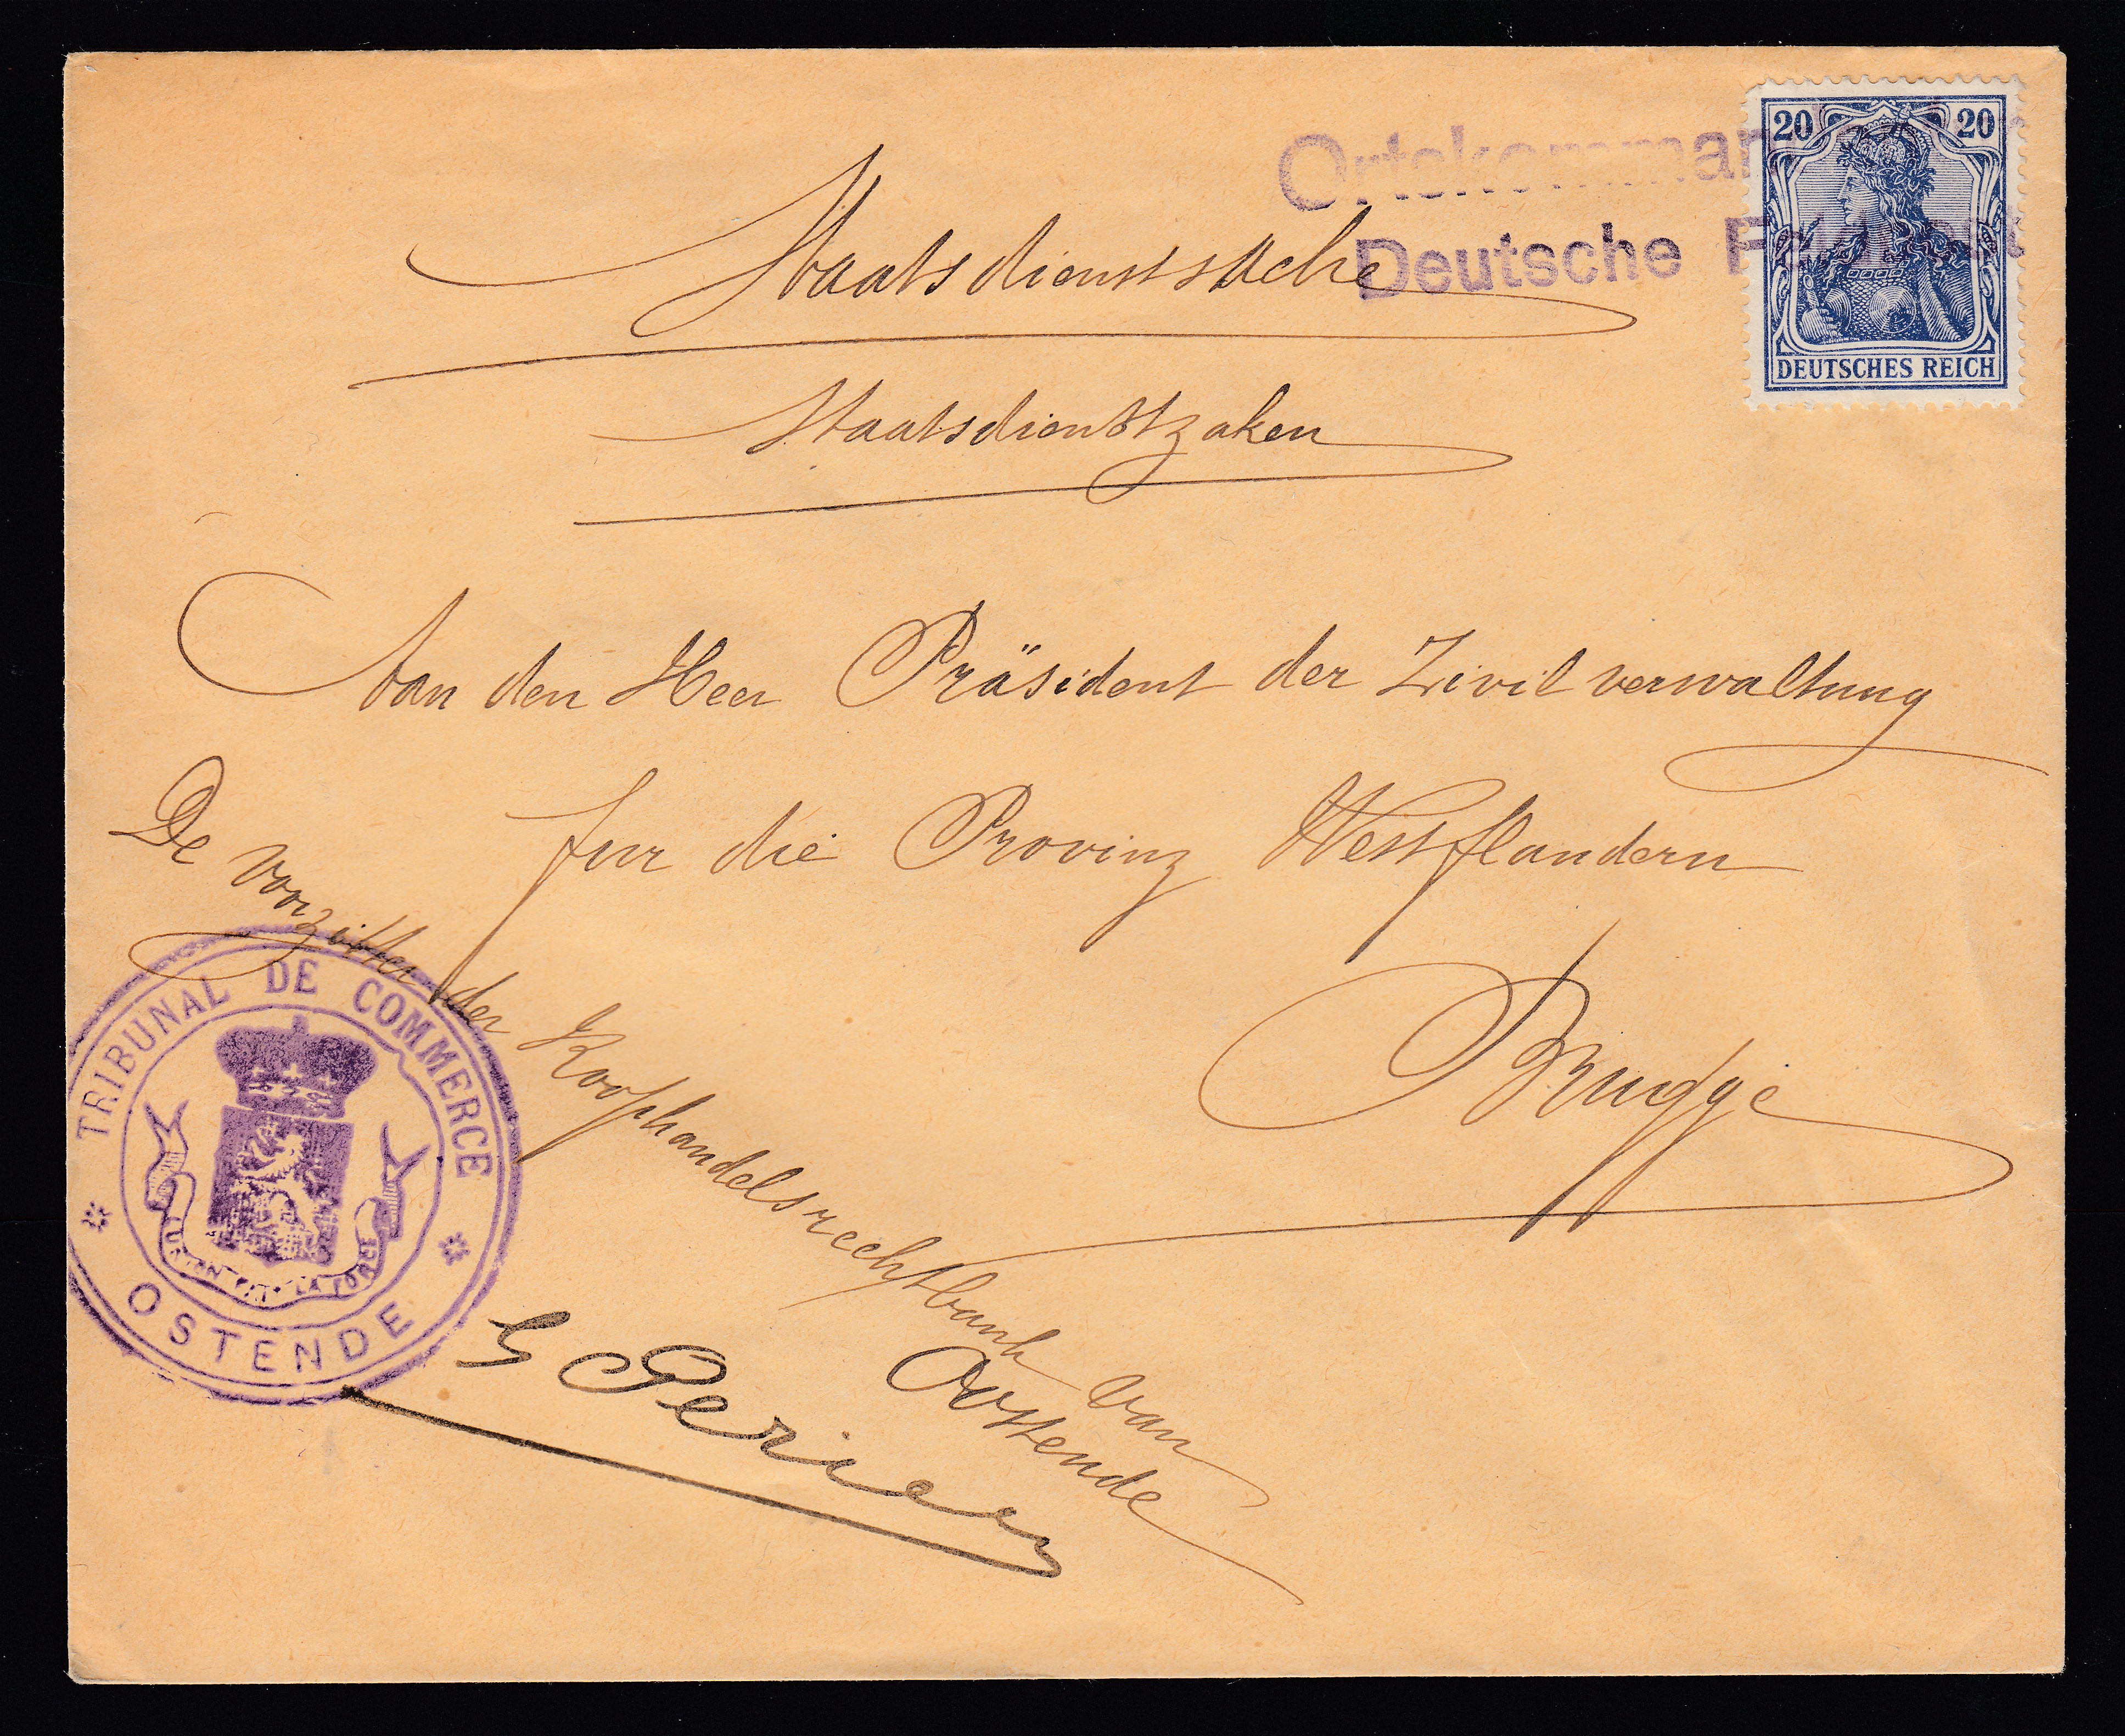 Ortskomman
Deutsche Feldpost
20 20
DEUTSCHES REICH
Staatsdienstsache
Staatsdienstzaken
Aan den Heer Präsident der Zivilverwaltung
fur die Provinz Westflandern
Brugge
De voorzitter der Koophandelsrechtbank van
Oostende
TRIBUNAL DE COMMERCE
UNION FAIT LA FORCE
OSTENDE